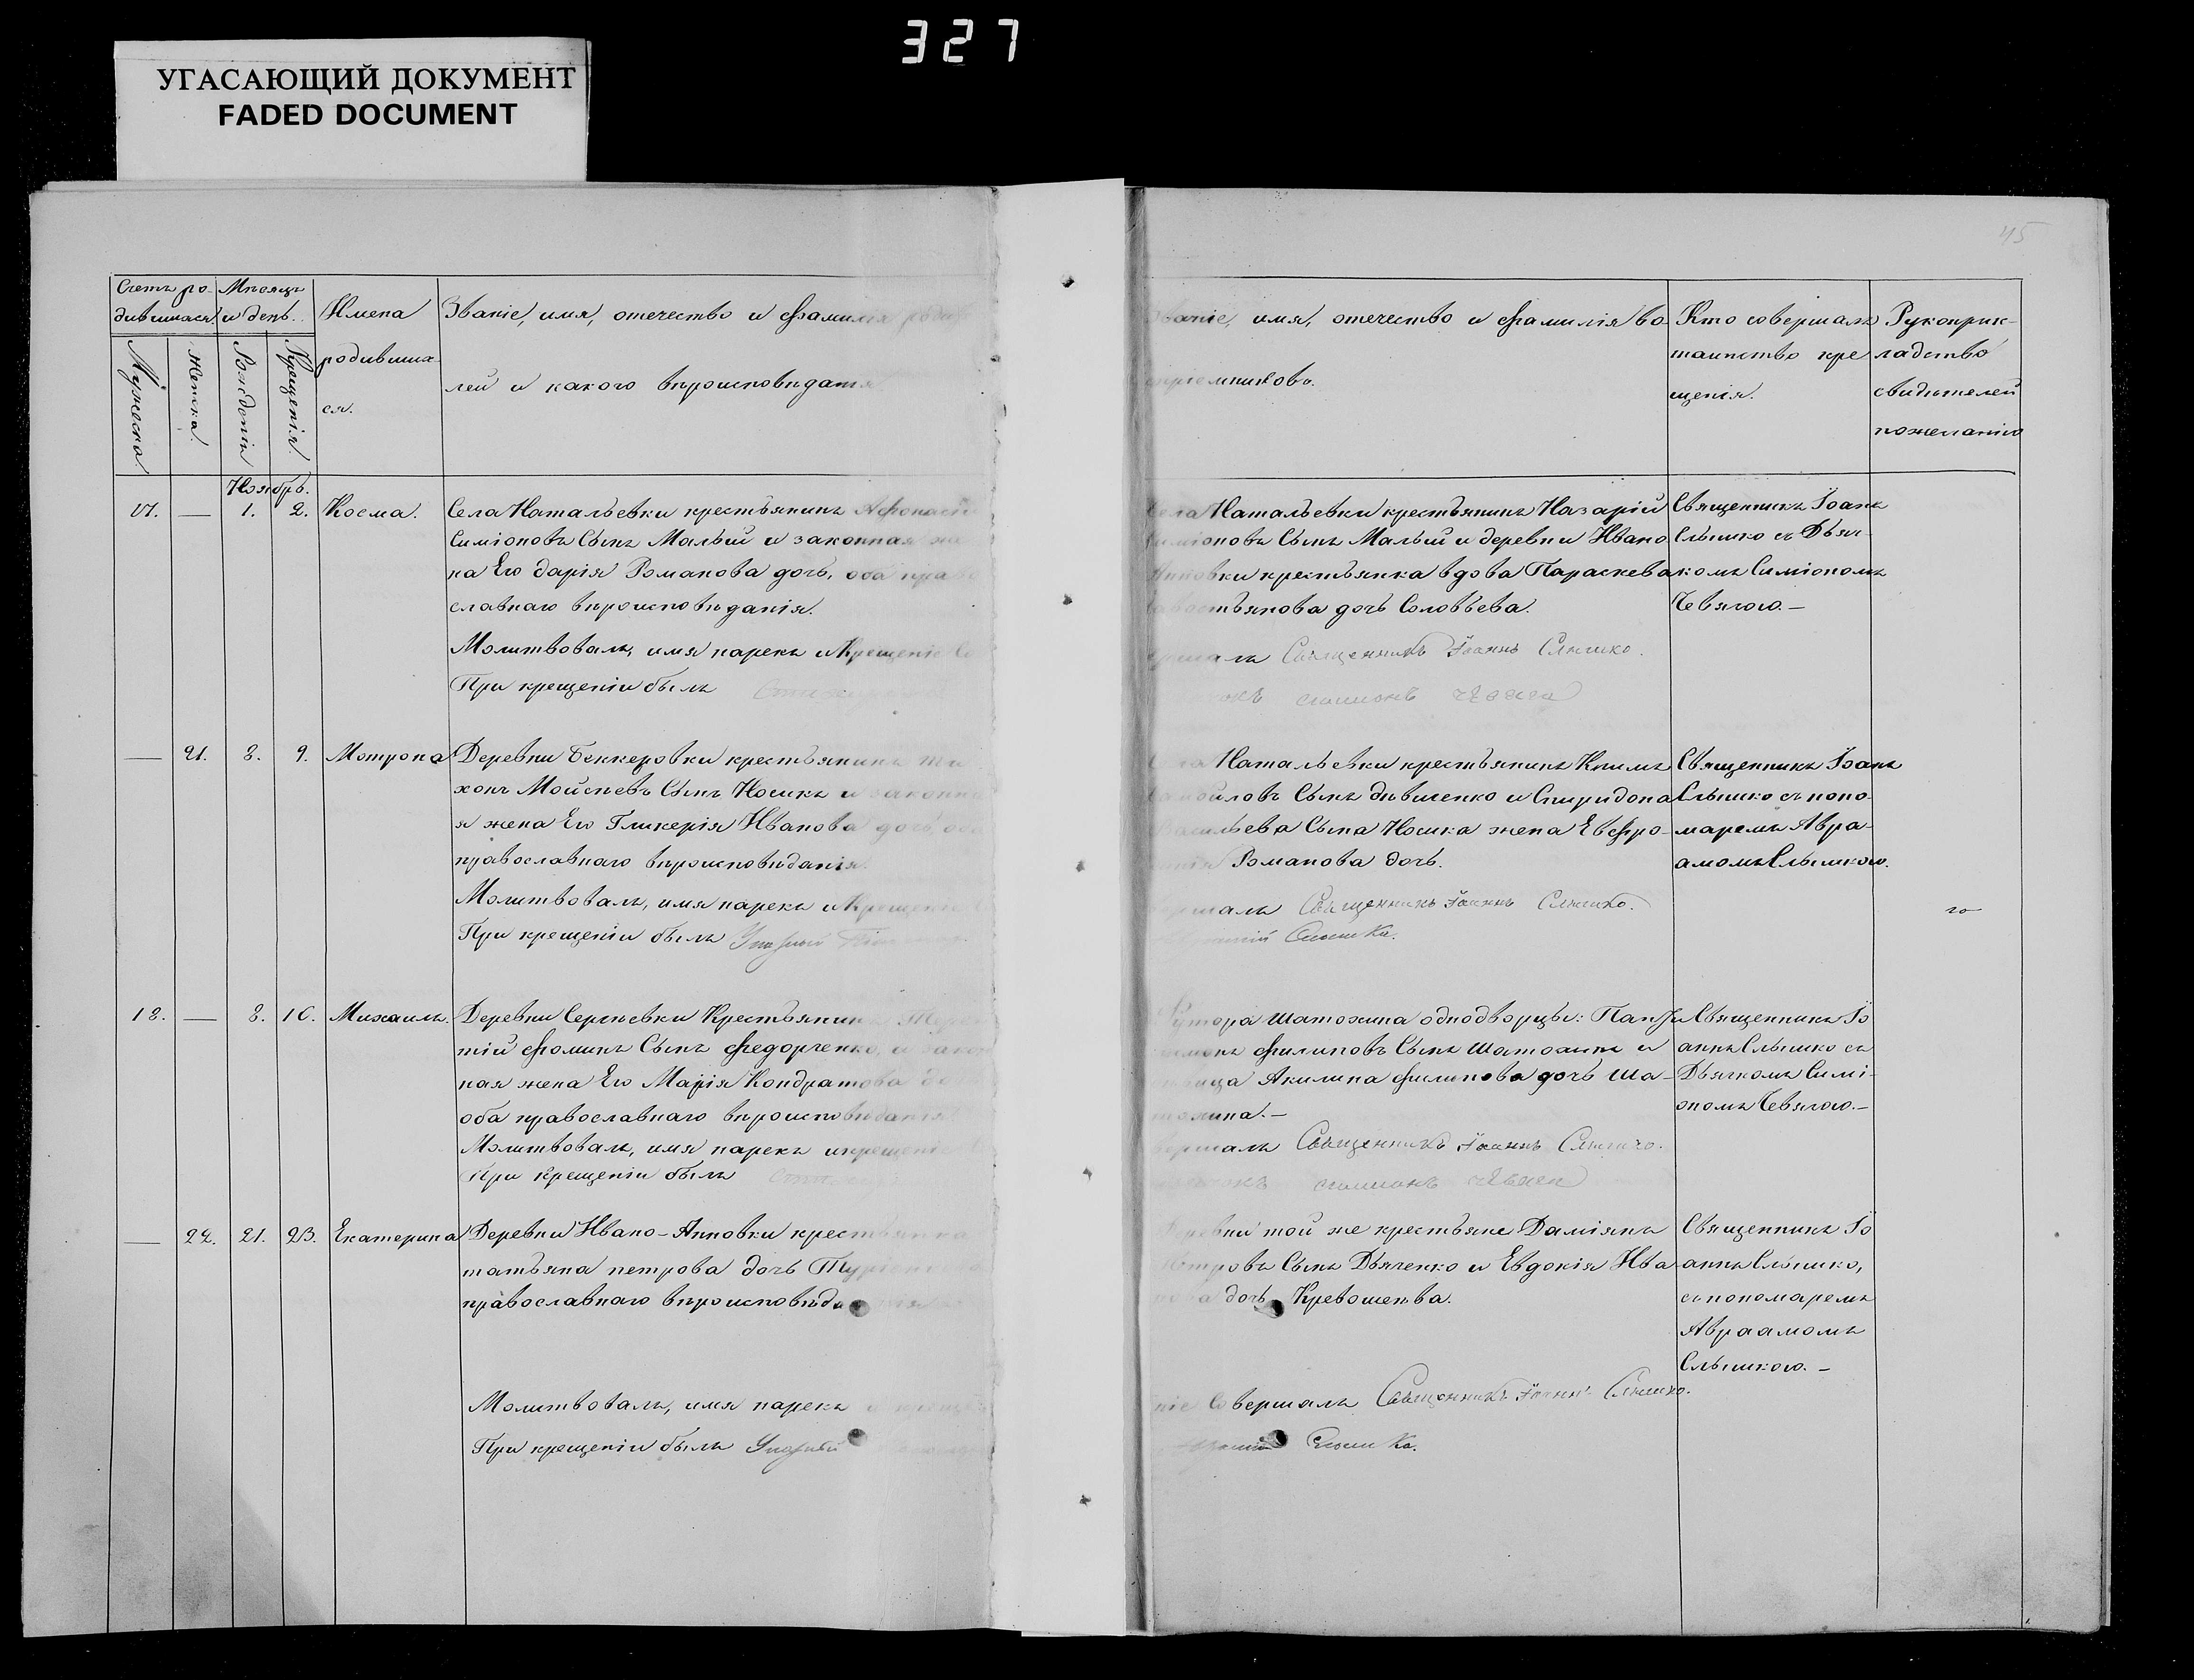 327
УГАСАЮЩИЙ ДОКУМЕНТ
FADED DOCUMENT
45
Счетъ ро-
дившихся.
Мѣсяцъ
и день.
Мужеска.
Женска.
Рожденія
Крещенія.
Имена
родивших
ся.
Званіе, имя, отечество и фамилія роди
лей и какого вѣроисповѣданія
Званіе, имя, отечество и фамилія во
спріемниковъ.
Кто совершалъ
таинство кре
щенія.
Рукоприк-
ладство
свидѣтелей
пожеланію
Ноябрь.
17. — 1. 2. Косма.
Села Натальевки крестьянинъ Афонасій
Симіоновъ Сынъ Малый и законная же
на Его Дарія Романова дочь, оба право
славнаго вѣроисповѣданія.
Молитвовалъ, имя нарекъ и Крещеніе Со
При крещеніи былъ
Села Натальевки крестьянинъ Назарій
Симіоновъ Сынъ Малый и деревни Ивано
Анновки крестьянка вдова Параскева
дочь Соловьева.
ершалъ Священникъ Іоаннъ Слышко.
Священникъ Іоанъ
Слышко съ Дьяч-
комъ Симіономъ
Чевягою.—
— 21. 8. 9. Мотрона
Деревни Беккеровки крестьянинъ Ти
хонъ Мойсѣевъ Сынъ Носикъ и законна
я жена Его Гликерія Иванова дочь оба
православнаго вѣроисповѣданія.
Молитвовалъ, имя нарекъ и Крещеніе
При крещеніи былъ
Села Натальевки крестьянинъ Климъ
Самойловъ Сынъ Дѣвиченко и Спиридона
Васильева Сына Носика жена Евфро-
Романова дочь.
ершалъ Священникъ Іоаннъ Слышко.
Слышка.
Священникъ Іоанъ
Слышко съ поно-
маремъ Авра-
амомъ Слышкою.
18. — 8. 10. Михаилъ.
Деревни Сергѣевки Крестьянинъ
тій Фоминъ Сынъ Федорченко, и закон
ная жена Его Марія Кондратова до
оба православнаго вѣроисповѣданія
Молитвовалъ, имя нарекъ и крещеніе
При крещеніи былъ
Хутора Шатохина однодворцы: Панте
Филиповъ Сынъ Шатохинъ и
Акилина Филипова дочь Ша-
тохина.—
вершалъ Священникъ Іоаннъ Слышко.
Священникъ Іо
аннъ Слышко съ
Дьячкомъ Симі-
ономъ Чевягою.—
— 22. 21. 23. Екатерина
Деревни Ивано-Анновки крестьянка
татьяна петрова дочь
православнаго вѣроисповѣданія
Молитвовалъ, имя нарекъ и креще
При крещеніи былъ
Деревни той же крестьяне Даміянъ
Петровъ Сынъ Дьяченко и Евдокія Ива
нова дочь Кревошеева.
ніе Совершалъ Священникъ Іоаннъ Слышко.
Слышка.
Священникъ Іо
аннъ Слышко,
съ пономаремъ
Авраамомъ
Слышкою.—